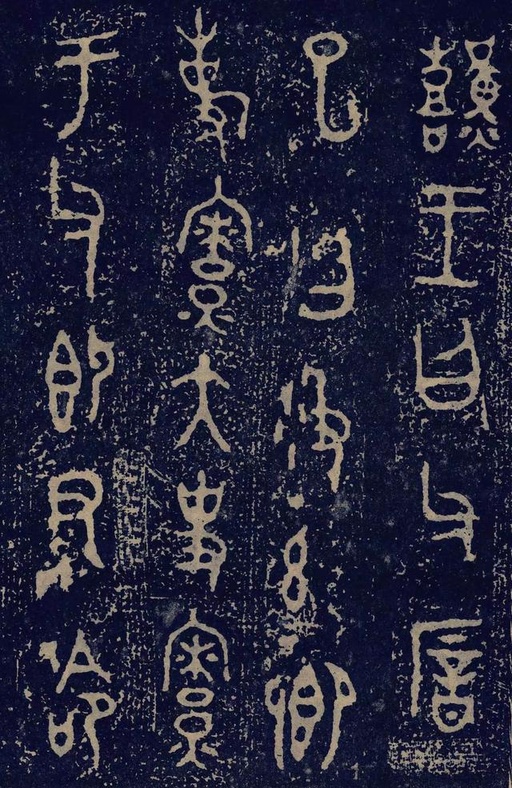 囏王曰父㕋
巳曰彶𢆶卿
事寮大史寮
于父即尹命